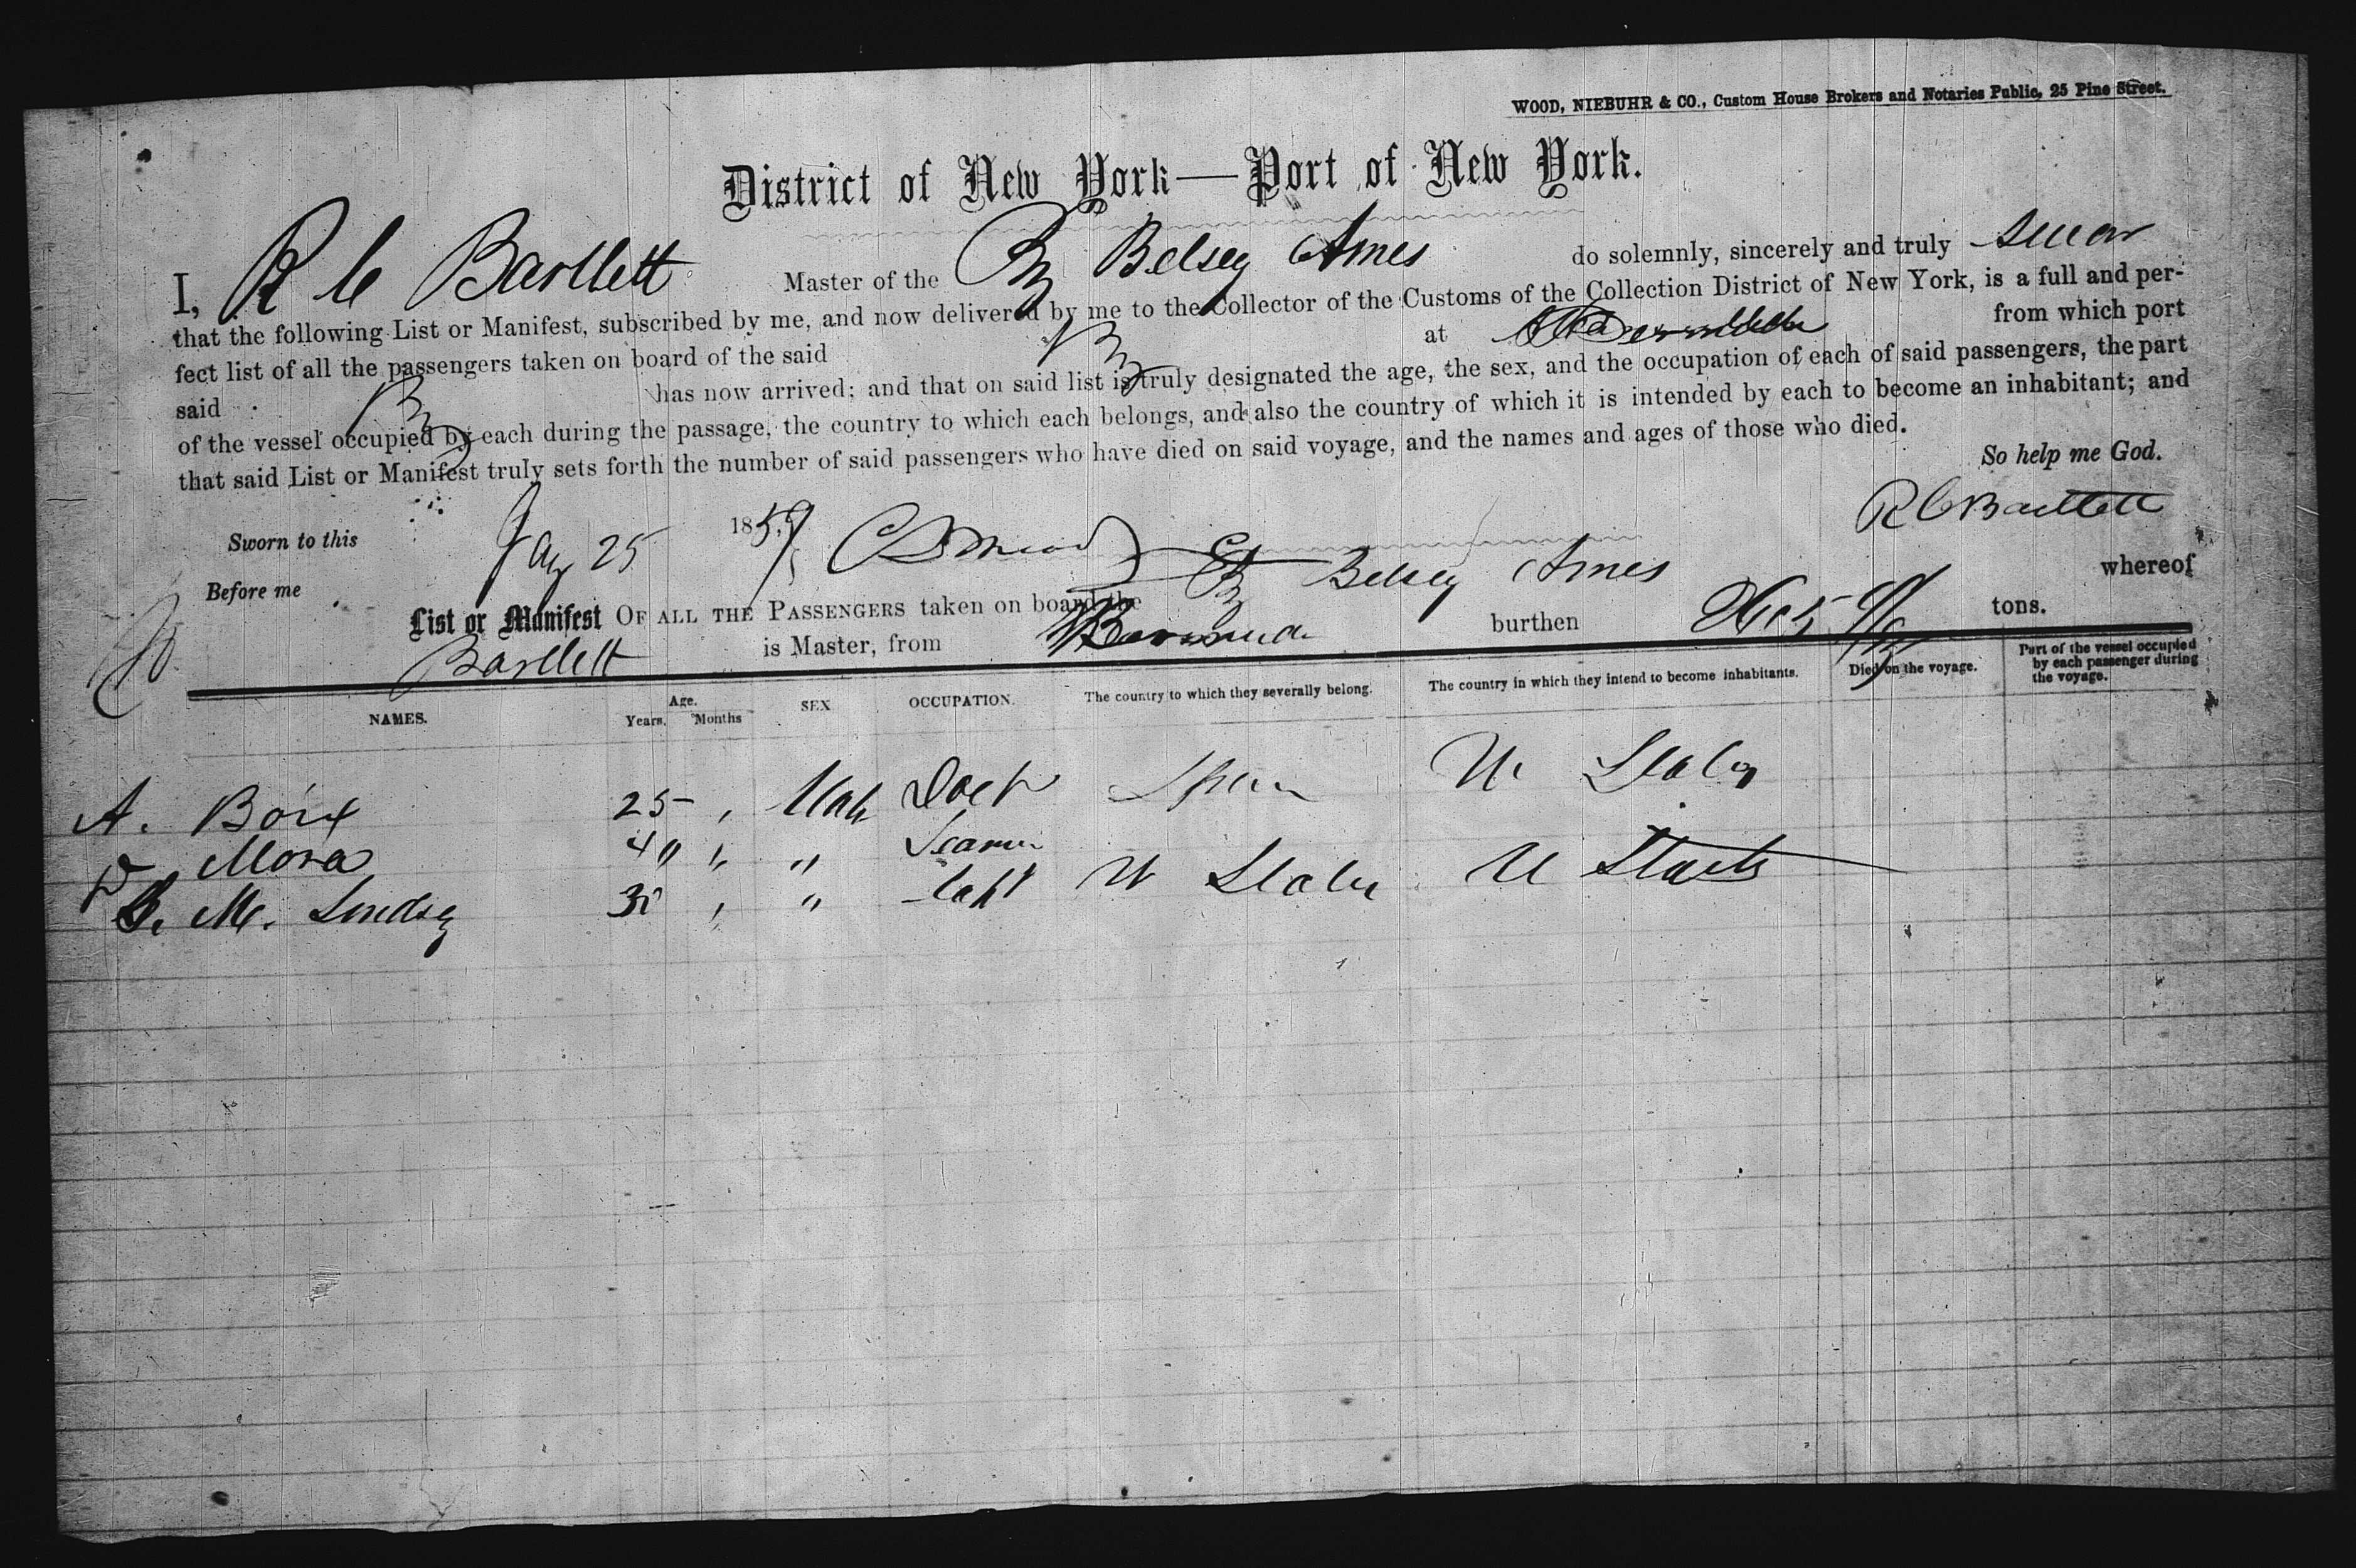 WOOD, NIEBUHR & CO., Custom House Brokers and Notaries Public, 25 Pine Street.
District of New York—Port of New York.
I, R C Bartlett Master of the Bg Betsey Ames do solemnly, sincerely and truly swear
that the following List or Manifest, subscribed by me, and now delivered by me to the Collector of the Customs of the Collection District of New York, is a full and per-
fect list of all the passengers taken on board of the said Bg at from which port
said Bg has now arrived; and that on said list is truly designated the age, the sex, and the occupation of each of said passengers, the part
of the vessel occupied by each during the passage, the country to which each belongs, and also the country of which it is intended by each to become an inhabitant; and
that said List or Manifest truly sets forth the number of said passengers who have died on said voyage, and the names and ages of those who died.
So help me God.
Sworn to this Jay 25 1859 R C Bartlett
Before me
List or Manifest OF ALL THE PASSENGERS taken on board the Bg Betsey Ames whereof
Bartlett is Master, from Bermuda burthen 265 tons.
NAMES. Age. Years. Months SEX OCCUPATION. The country to which they severally belong. The country in which they intend to become inhabitants. Died on the voyage. Part of the vessel occupied by each passenger during the voyage.
A. Boix 25 " Male Doct Spain U States
Mora 40 " " Seaman
M. Lindsey " " Capt U States U States